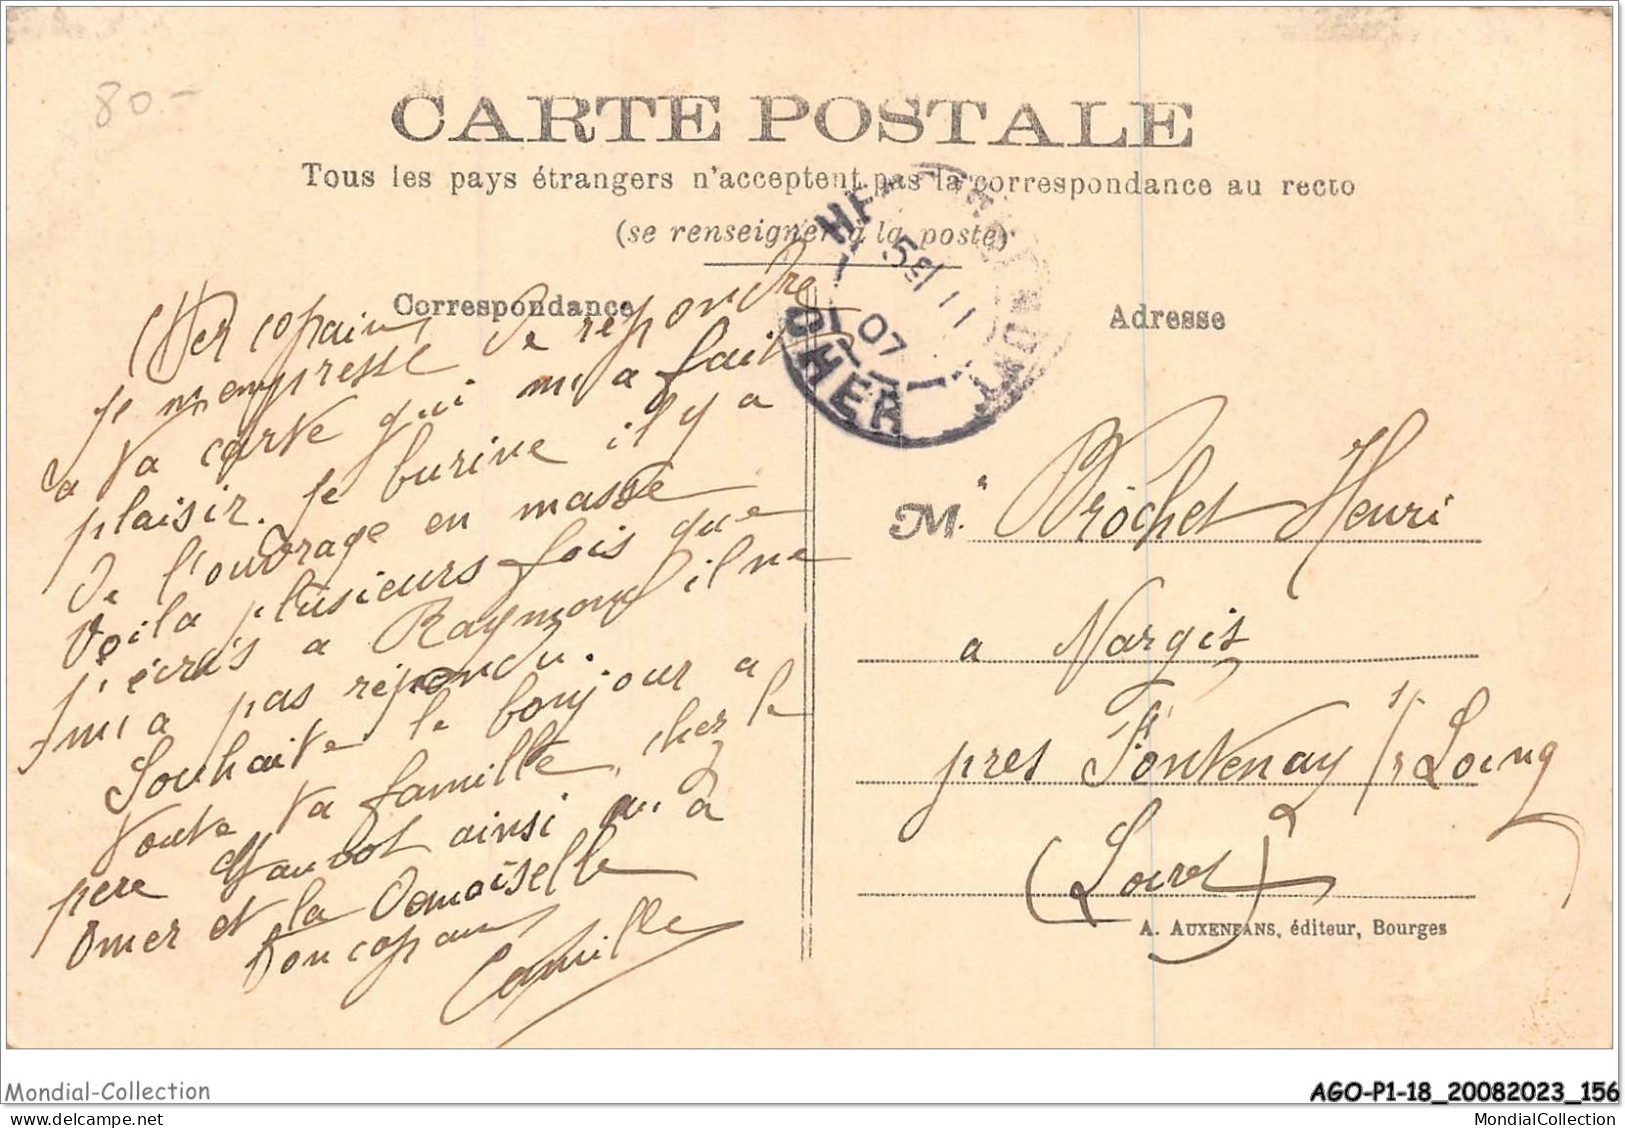 80.-
CARTE POSTALE
Tous les pays étrangers n'acceptent pas la correspondance au recto
(se renseigner à la poste)
Correspondance
Cher copain
je m'empresse de repondre
a ta carte qui m'a fait
plaisir. je burine il y a
de l'ouvrage en masse
voila plusieurs fois que
j'écris a Raymond il ne
m'a pas répondu.
Souhaite le bonjour a
toute ta famille, chez le
pere ainsi qu'à
Omer et la Demoiselle
ton copain
Camille
CHER
5E/11
07
Adresse
M. Brochet Henri
a Nargis
pres Fontenay s/r Loing
(Loiret)
A. AUXENFANS, éditeur, Bourges
Mondial-Collection
AGO-P1-18_20082023_156
MondialCollection